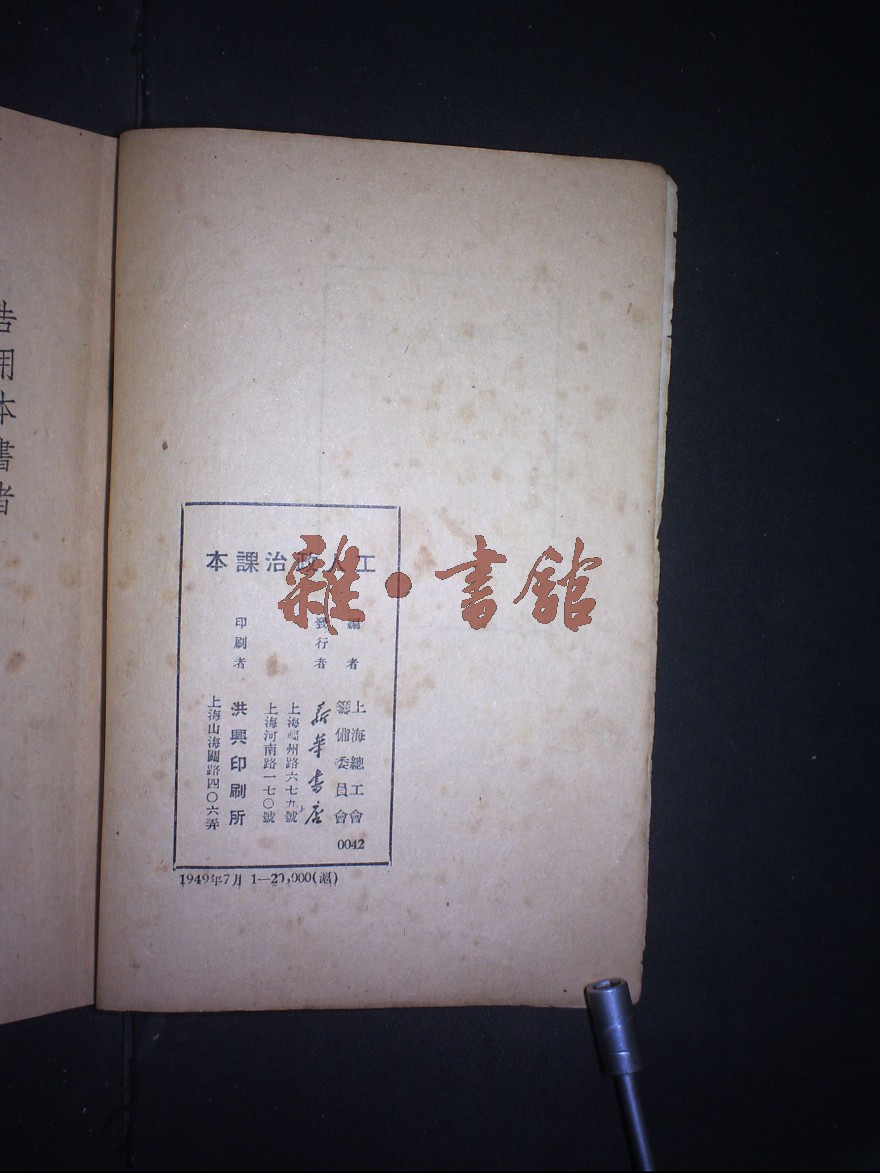 告用本書者
工人政治課本
編者 上海總工會
籌備委員會
發行者 新華書店
上海福州路六七九號
上海河南路一七〇號
印刷者 洪興印刷所
上海山海關路四〇六弄
0042
1949年7月 1—20,000(滬)
雜·書館